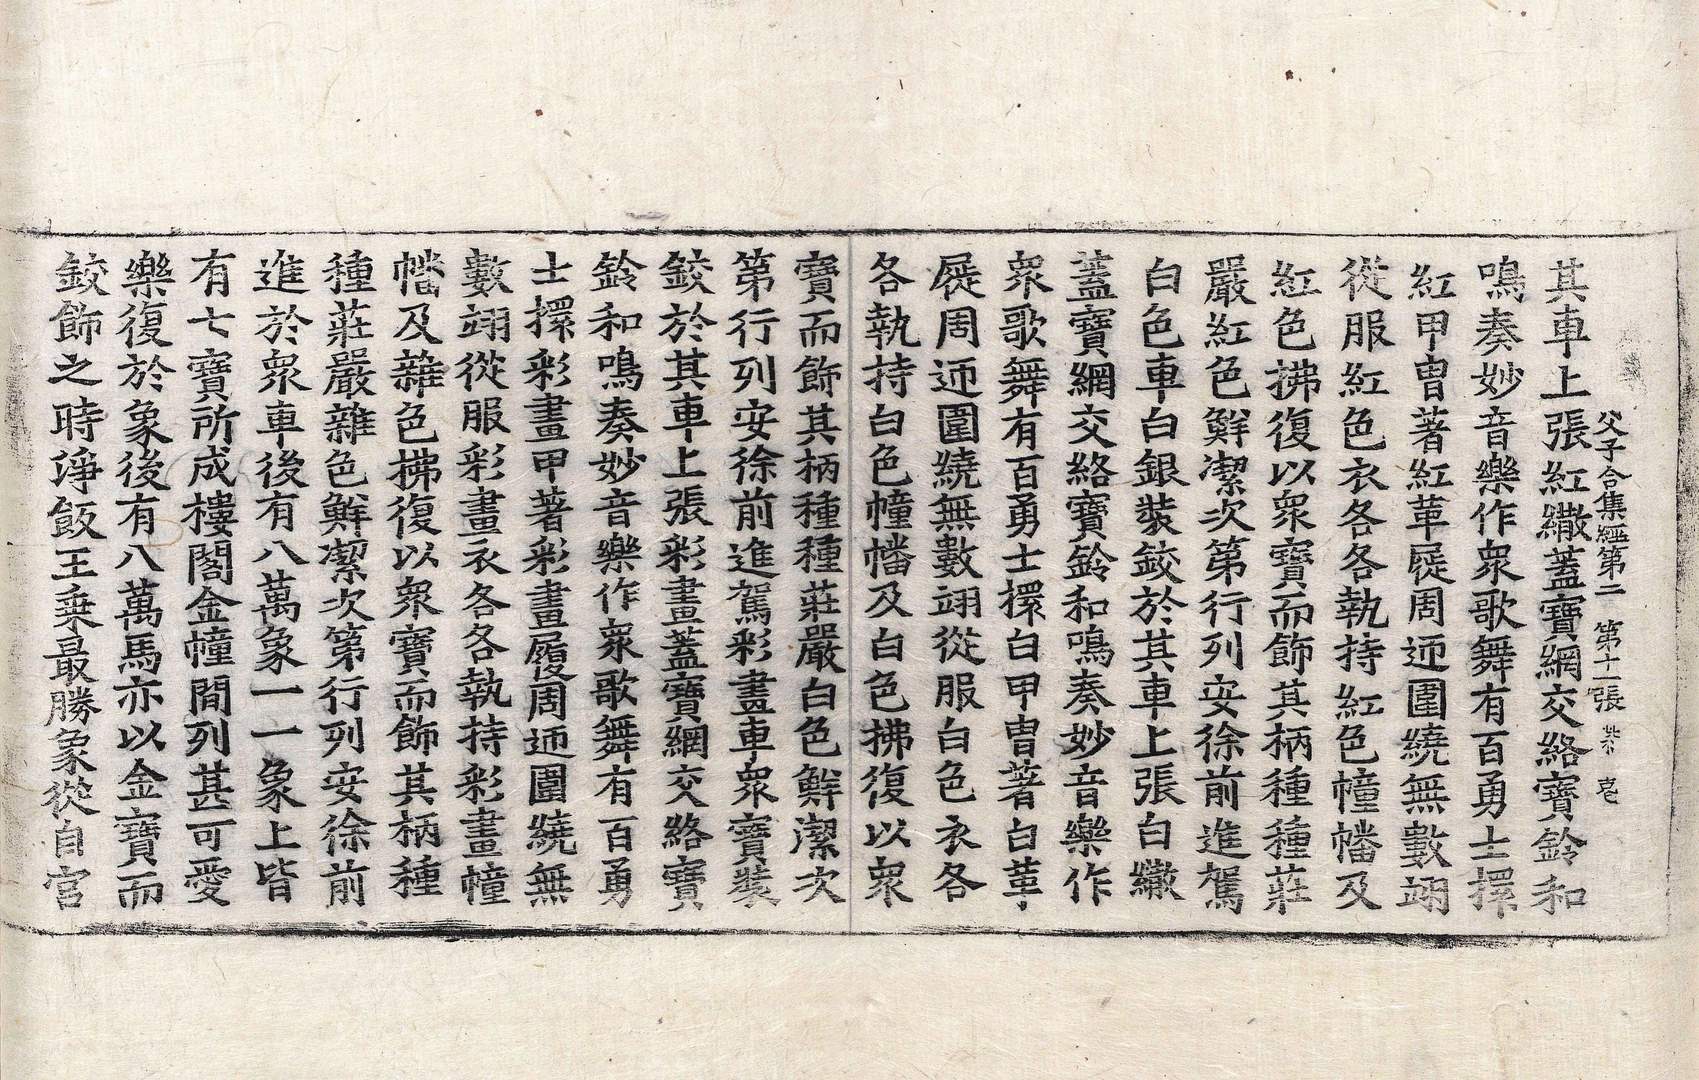 父子合集經第二 第十一張
其車上張紅繖蓋寶網交絡寶鈴和
鳴奏妙音樂作衆歌舞有百勇士擐
紅甲胄著紅革屣周迊圍繞無數翊
從服紅色衣各各執持紅色幢幡及
紅色拂復以衆寶而飾其柄種種莊
嚴紅色鮮潔次第行列安徐前進駕
白色車白銀裝鉸於其車上張白繖
蓋寶網交絡寶鈴和鳴奏妙音樂作
衆歌舞有百勇士擐白甲胄著白革
屣周迊圍繞無數翊從服白色衣各
各執持白色幢幡及白色拂復以衆
寶而飾其柄種種莊嚴白色鮮潔次
第行列安徐前進駕彩畫車衆寶裝
鉸於其車上張彩畫蓋寶網交絡寶
鈴和鳴奏妙音樂作衆歌舞有百勇
士擐彩畫甲著彩畫履周迊圍繞無
數翊從服彩畫衣各各執持彩畫幢
幡及雜色拂復以衆寶而飾其柄種
種莊嚴雜色鮮潔次第行列安徐前
進於衆車後有八萬象一一象上皆
有七寶所成樓閣金幢間列甚可愛
樂復於象後有八萬馬亦以金寶而
鉸飾之時淨飯王乗最勝象從自宮